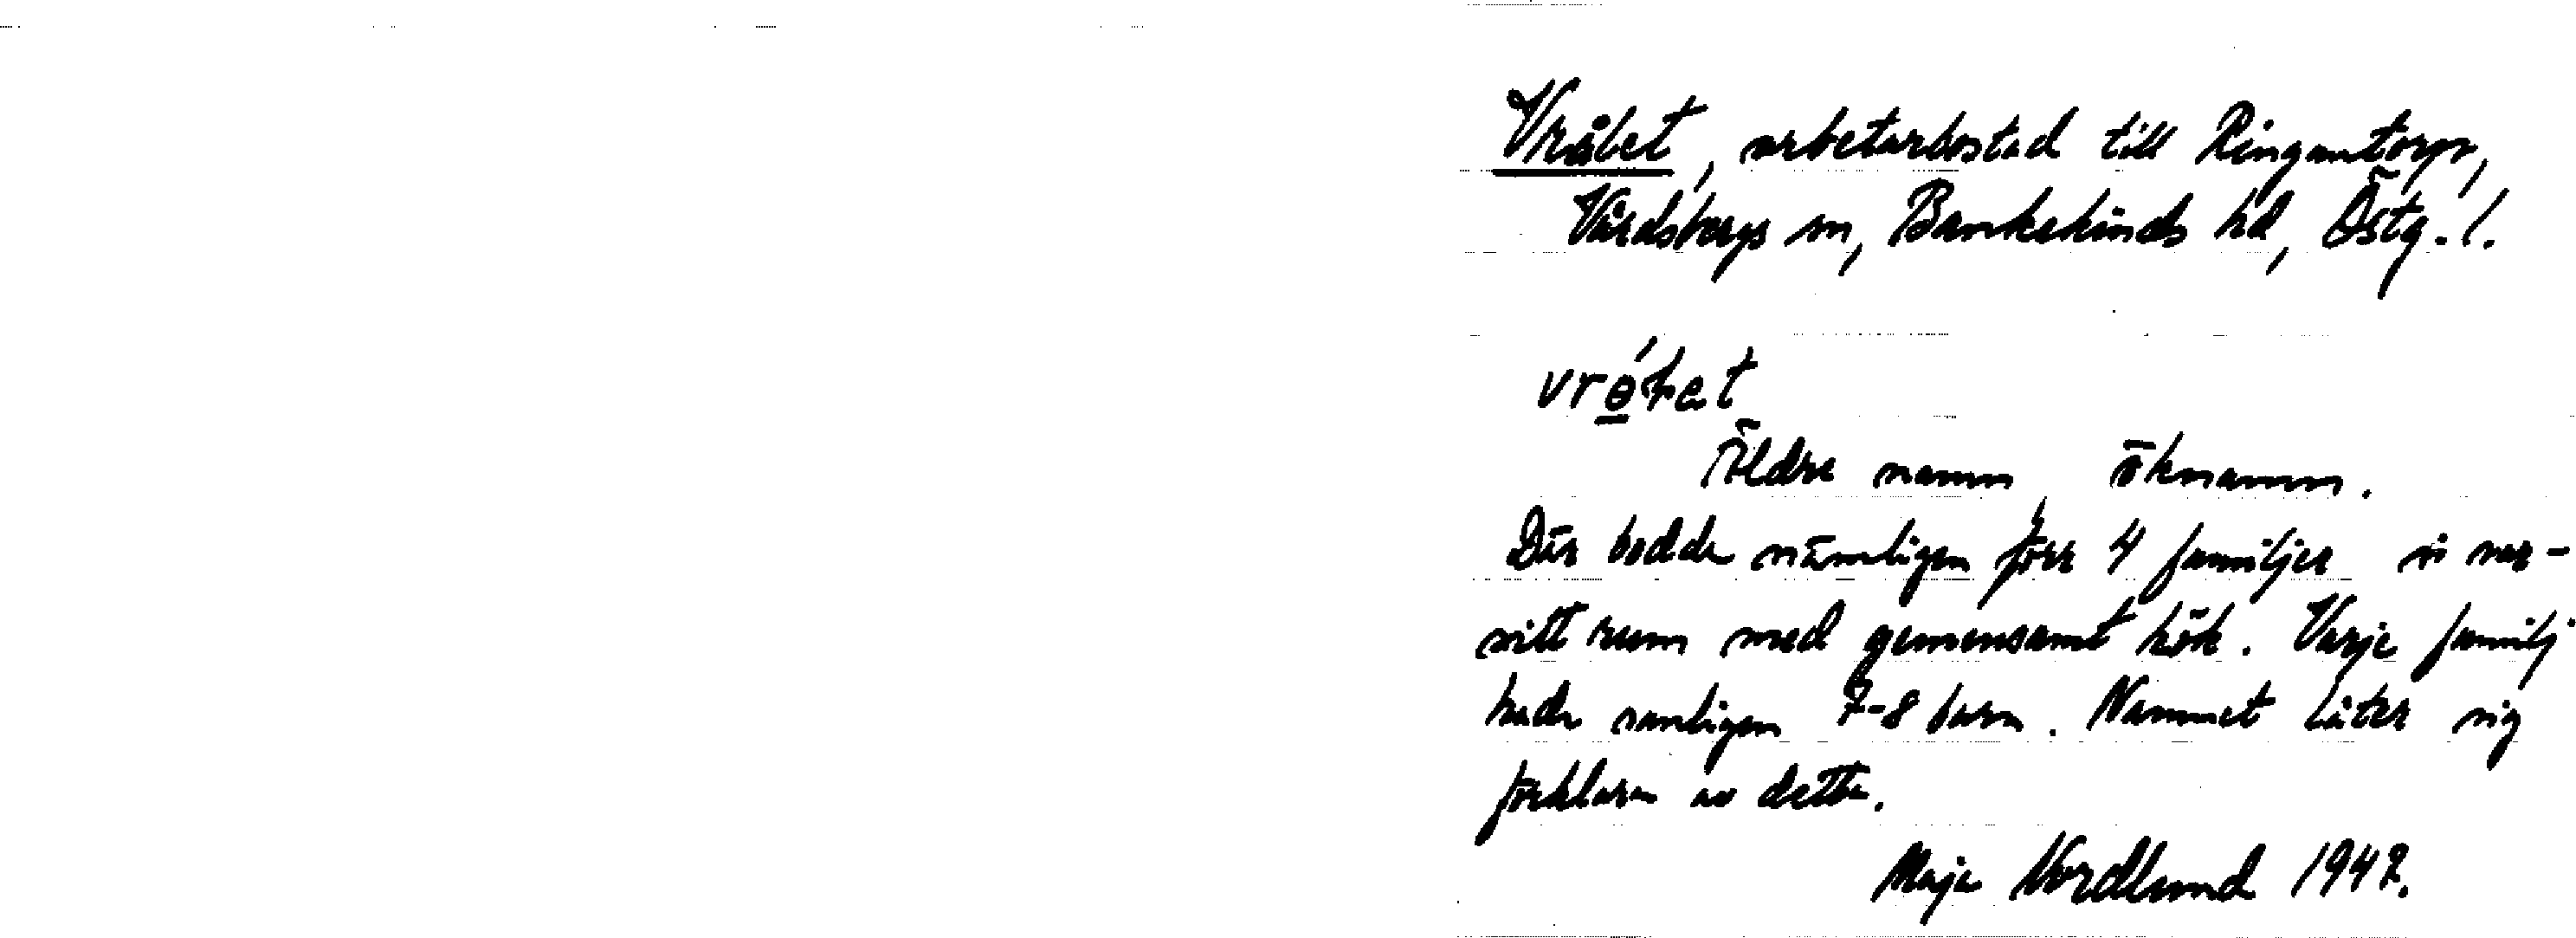 Vrålet, arbetarbostad till Ringantorp,
Vårdsbergs sn, Bankekinds hd, Östg. l.
Äldre namn, öknamn.
Där bodde nämligen förr 4 familjer i var-
sitt rum med gemensamt kök. Varje familj
hade vanligen 7-8 barn. Namnet låter sig
förklaras av detta.
Maja Nordlund 1947.